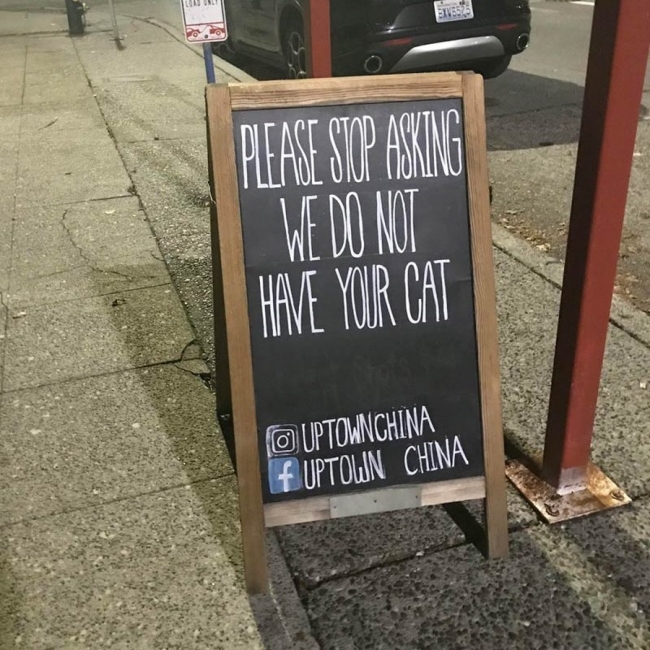 LOAD ONLY
PLEASE STOP ASKING
WE DO NOT
HAVE YOUR CAT
UPTOWNCHINA
f UPTOWN CHINA